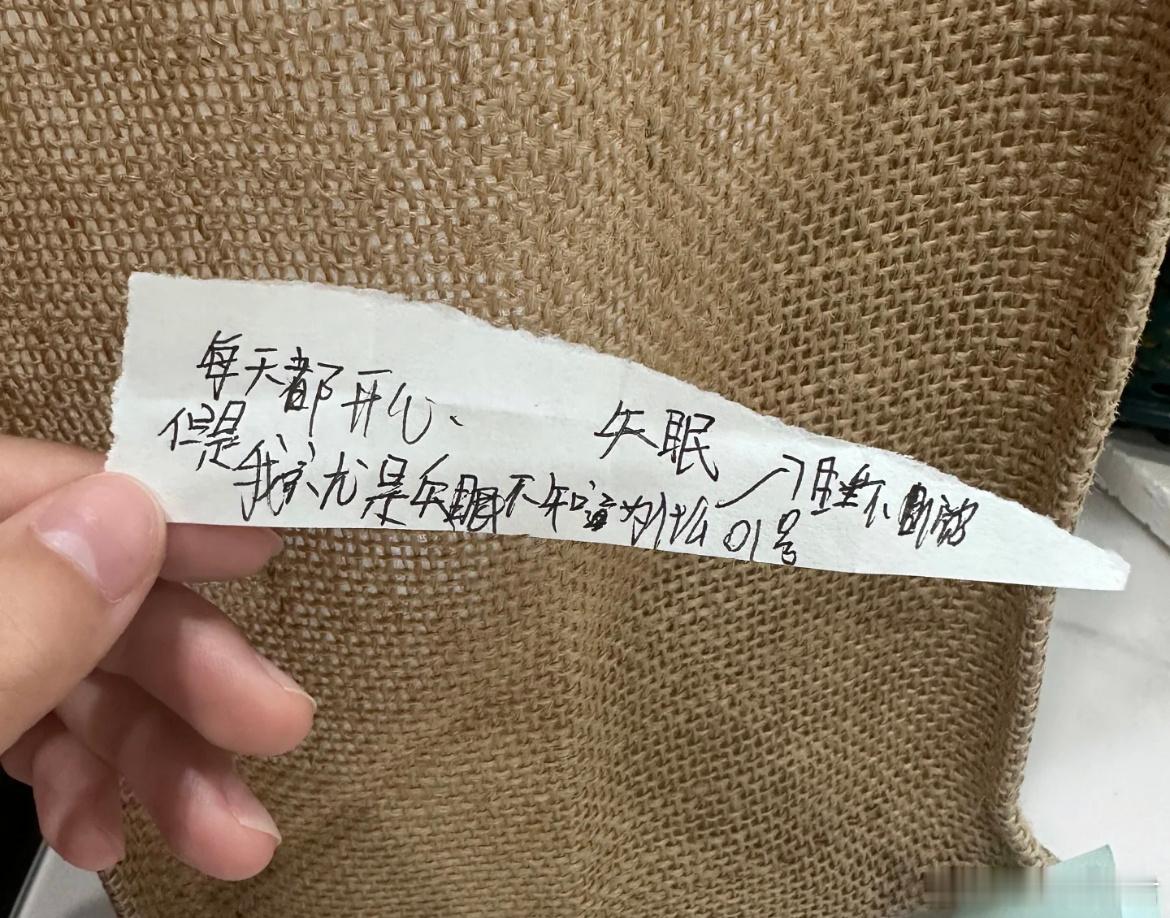 每天都开心、
失眠
但是我就是失眠不知道为什么
01号
睡不